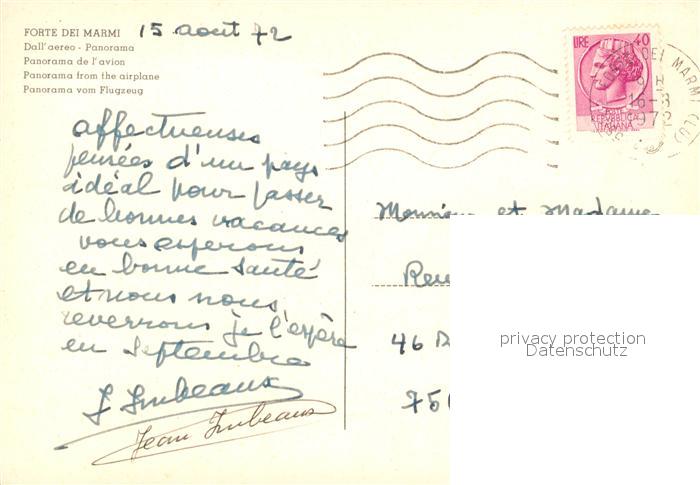 FORTE DEI MARMI 15 aout 72
Dall'aereo - Panorama
Panorama de l'avion
Panorama from the airplane
Panorama vom Flugzeug
LIRE 40
POSTE
REPUBBLICA
ITALIANA
DEI MARMI
16-8
1972
(LU)
affectueuses
pensées d'un pays
idéal pour passer
de bonnes vacances
vous esperons
en bonne santé
et nous nous
reverrons je l'espère
en Septembre
J Imbeaux
Jean Imbeaux
Monsieur et Madame
46
privacy protection
Datenschutz